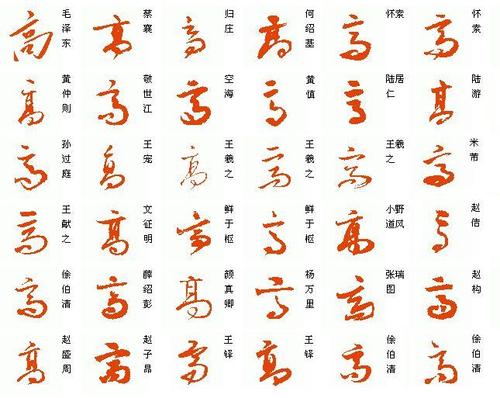 高 毛泽东
高 蔡襄
高 归庄
高 何绍基
高 怀素
高 怀素
高 黄仲则
高 敬世江
高 空海
高 黄慎
高 陆居仁
高 陆游
高 孙过庭
高 王宠
高 王羲之
高 王羲之
高 王羲之
高 米芾
高 王献之
高 文征明
高 鲜于枢
高 鲜于枢
高 小野道风
高 赵佶
高 徐伯清
高 薛绍彭
高 颜真卿
高 杨万里
高 张瑞图
高 赵构
高 赵盛周
高 赵子昂
高 王铎
高 王铎
高 徐伯清
高 徐伯清